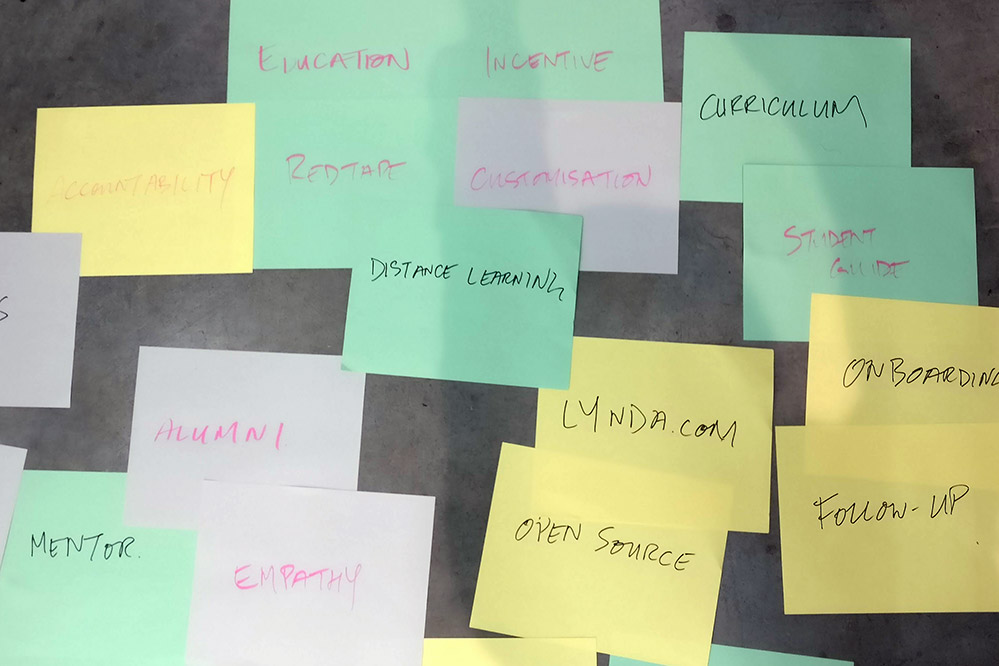 EDUCATION
INCENTIVE
CURRICULUM
ACCOUNTABILITY
REDTAPE
CUSTOMISATION
STUDENT
GUIDE
DISTANCE LEARNING
S
ONBOARDING
LYNDA.COM
ALUMNI
FOLLOW-UP
OPEN SOURCE
MENTOR.
EMPATHY